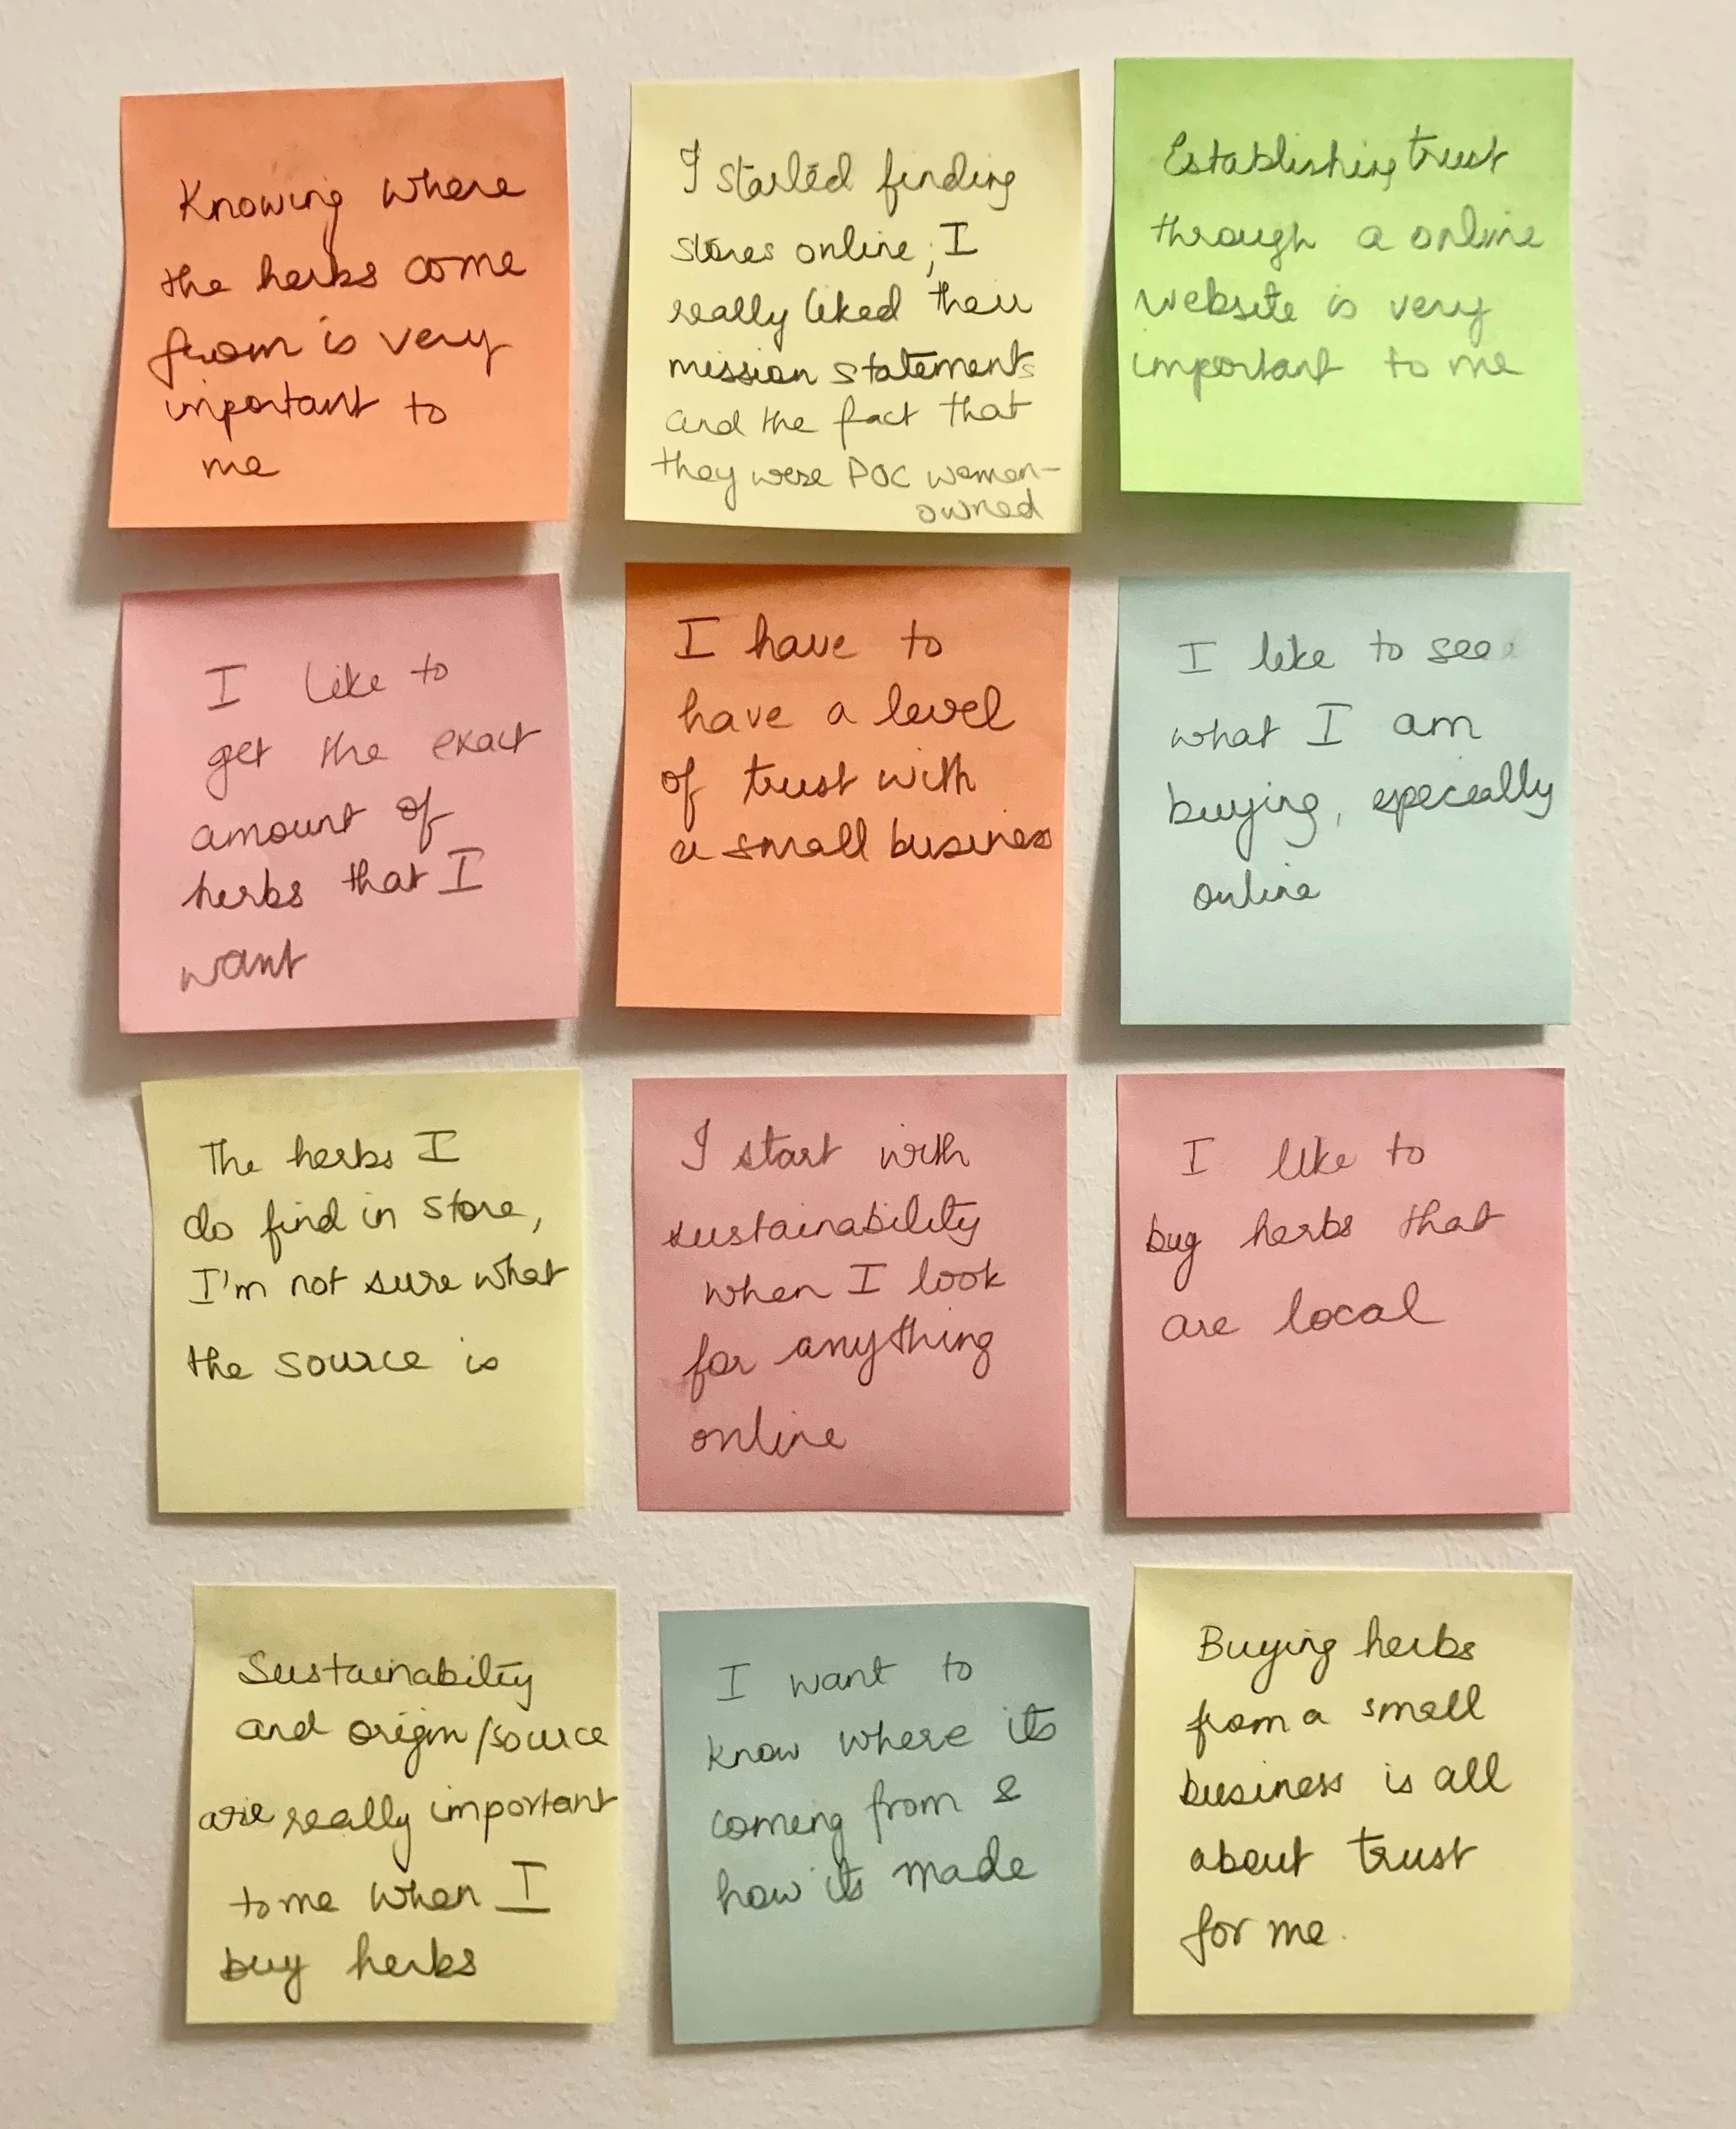 Knowing where
the herbs come
from is very
important to
me
I started finding
stores online, I
really liked their
mission statements
and the fact that
they were POC women-
owned
Establishing trust
through a online
website is very
important to me
I like to
get the exact
amount of
herbs that I
want
I have to
have a level
of trust with
a small business
I like to see
what I am
buying, especially
online
The herbs I
do find in store,
I'm not sure what
the source is
I start with
sustainability
when I look
for anything
online
I like to
buy herbs that
are local
Sustainability
and origin/source
are really important
to me when I
buy herbs
I want to
know where its
coming from &
how its made
Buying herbs
from a small
business is all
about trust
for me.